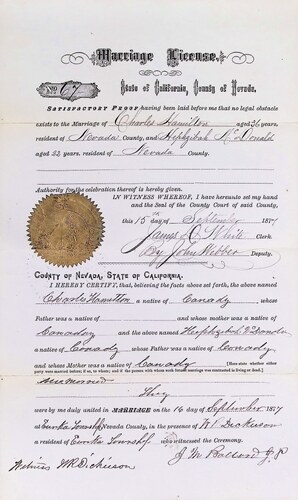 Marriage License.
No. 67
State of California, County of Nevada.
SATISFACTORY PROOF having been laid before me that no legal obstacle
exists to the Marriage of Charles Hamilton aged 36 years,
resident of Nevada County, and Hephzibah McDonald
aged 32 years, resident of Nevada County.
Authority for the celebration thereof is hereby given.
IN WITNESS WHEREOF, I have hereunto set my hand
and the Seal of the County Court of said County,
this 15th day of September 1877
James White Clerk.
By John Webber Deputy.
COUNTY OF NEVADA, STATE OF CALIFORNIA.
I HEREBY CERTIFY, that, believing the facts above set forth, the above named
Charles Hamilton a native of Canady, whose
Father was a native of and whose mother was a native of
Canady and the above named
a native of Canady whose Father was a native of Canady
and whose Mother was a native of Canady
unmarried
They
were by me duly united in MARRIAGE on the 16 day of September 1877
at Eureka Township Nevada County, in the presence of W Dickieson
resident of Eureka Township who witnessed the Ceremony.
Witness Dickieson J M Ballard J. P.